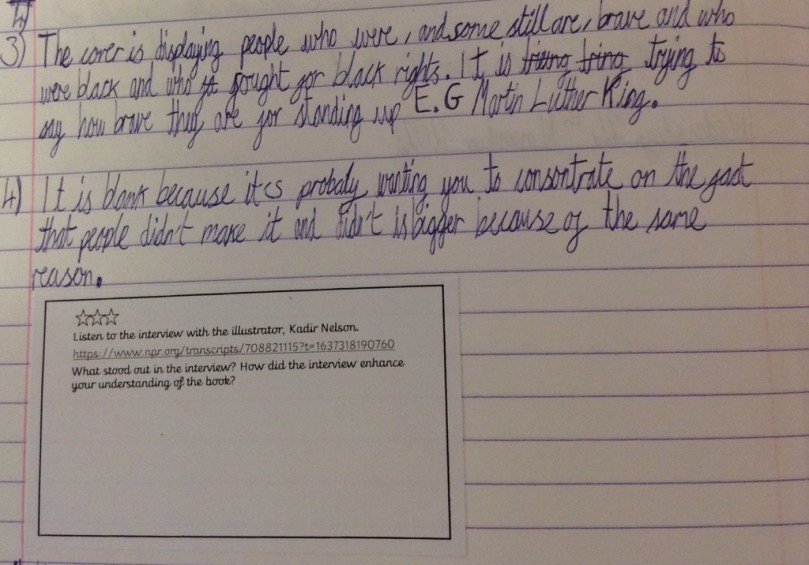 3) The cover is displaying people who were, and some still are, brave and who
were black and who fought for black rights. It is trying to
say how brave they are for standing up E.G Martin Luther King.
4) It is blank because it is probaly wanting you to consontrate on the fact
that people didn't make it and didn't Is bigger because of the same
reason.
☆☆☆
Listen to the interview with the illustrator, Kadir Nelson.
https://www.npr.org/transcripts/708821115?t=1637318190760
What stood out in the interview? How did the interview enhance
your understanding of the book?